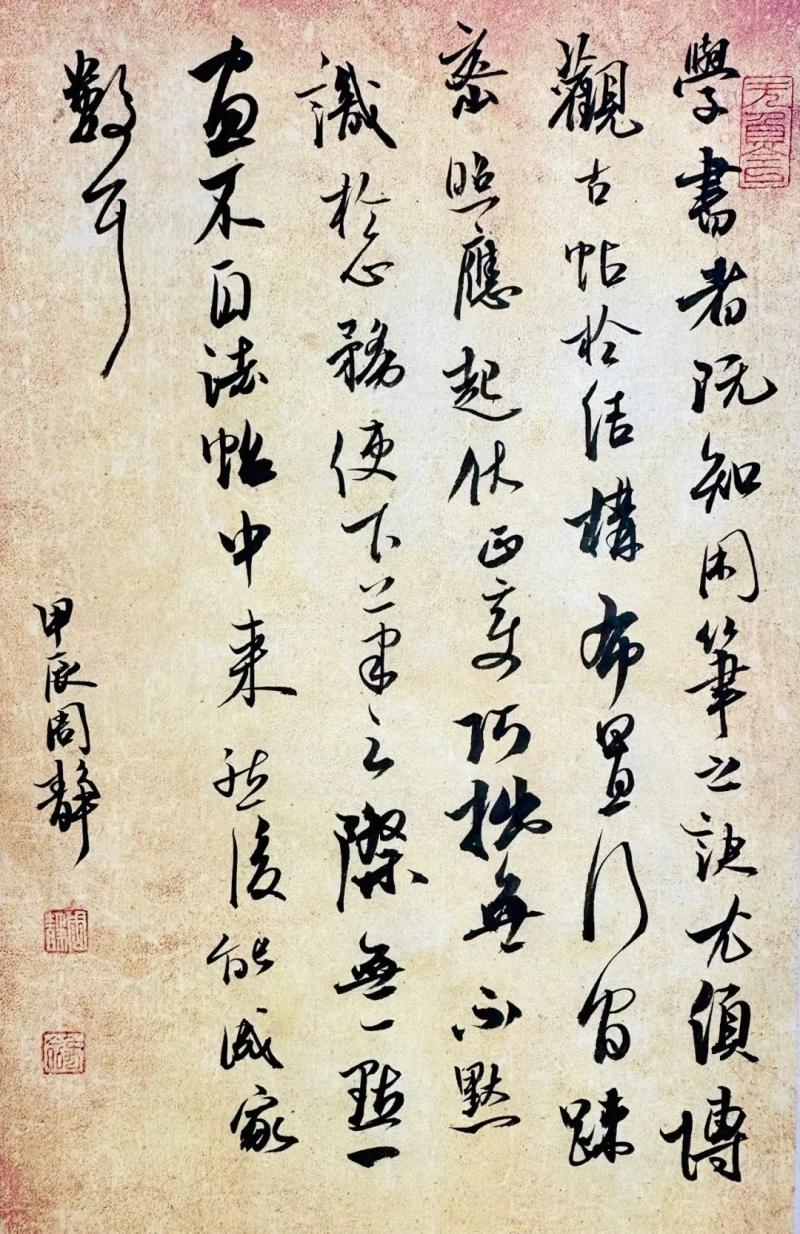 學書者既知用筆之訣尤須博
觀古帖於結構布置行間疎
密照應起伏正變巧拙無不默
識於心務使下筆之際無一點一
畫不自法帖中来然後能成家
數耳
甲辰周靜